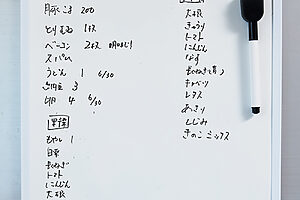 豚こま 200
とりもも 1枚
ベーコン 2枚 明日より
スパム
うどん 1 6/30
納豆 3
卵 4 6/30
野菜
もやし 1
白菜
長ねぎ
トマト
にんじん
大根
大根
きゅうり
トマト
にんじん
なす
キャベツ
レタス
あさり
しじみ
きのこミックス